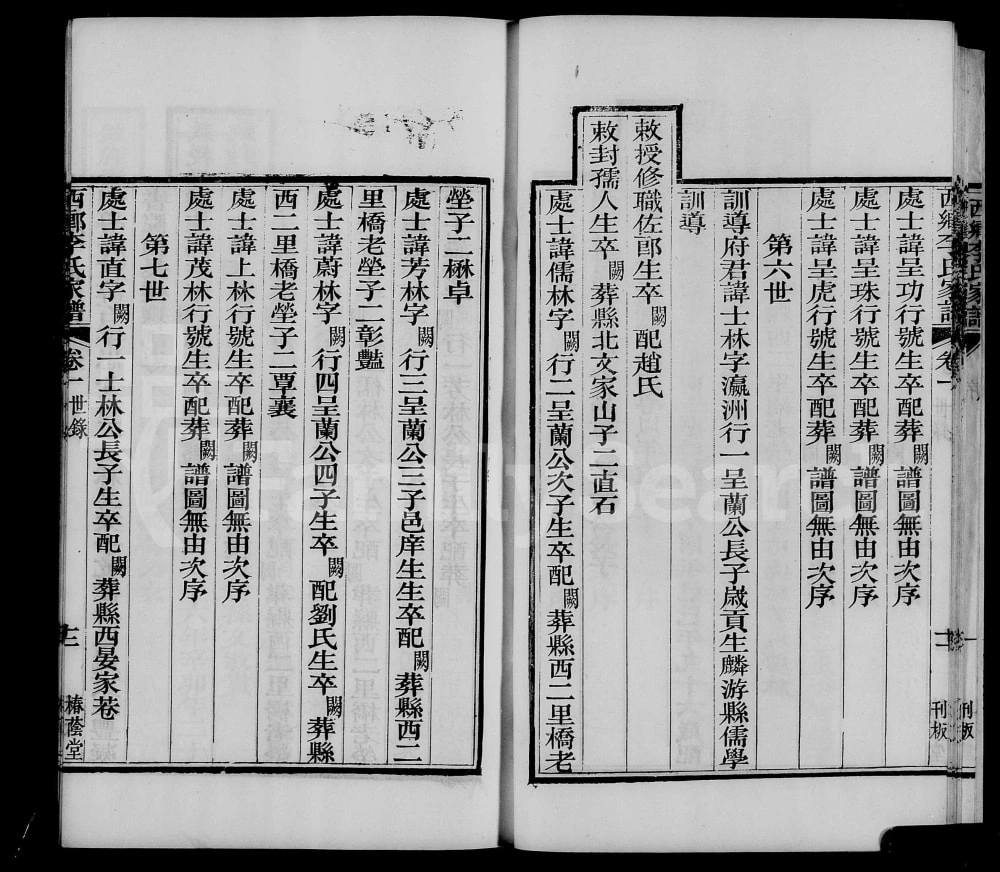 處士諱呈功行號生卒配葬闕譜圖無由次序
處士諱呈珠行號生卒配葬闕譜圖無由次序
處士諱呈虎行號生卒配葬闕譜圖無由次序
第六世
訓導府君諱士林字瀛洲行一呈蘭公長子歲貢生麟游縣儒學
訓導
敕授修職佐郎生卒闕配趙氏
敕封孺人生卒闕葬縣北文家山子二直石
處士諱儒林字闕行二呈蘭公次子生卒配闕葬縣西二里橋老
塋子二楙卓
處士諱芳林字闕行三呈蘭公三子邑庠生生卒配闕葬縣西二
里橋老塋子二彰豔
處士諱蔚林字闕行四呈蘭公四子生卒闕配劉氏生卒闕葬縣
西二里橋老塋子二覃襄
處士諱上林行號生卒配葬闕譜圖無由次序
處士諱茂林行號生卒配葬闕譜圖無由次序
第七世
處士諱直字闕行一士林公長子生卒配闕葬縣西晏家巷
西鄉李氏家譜 卷一 世錄 椿蔭堂